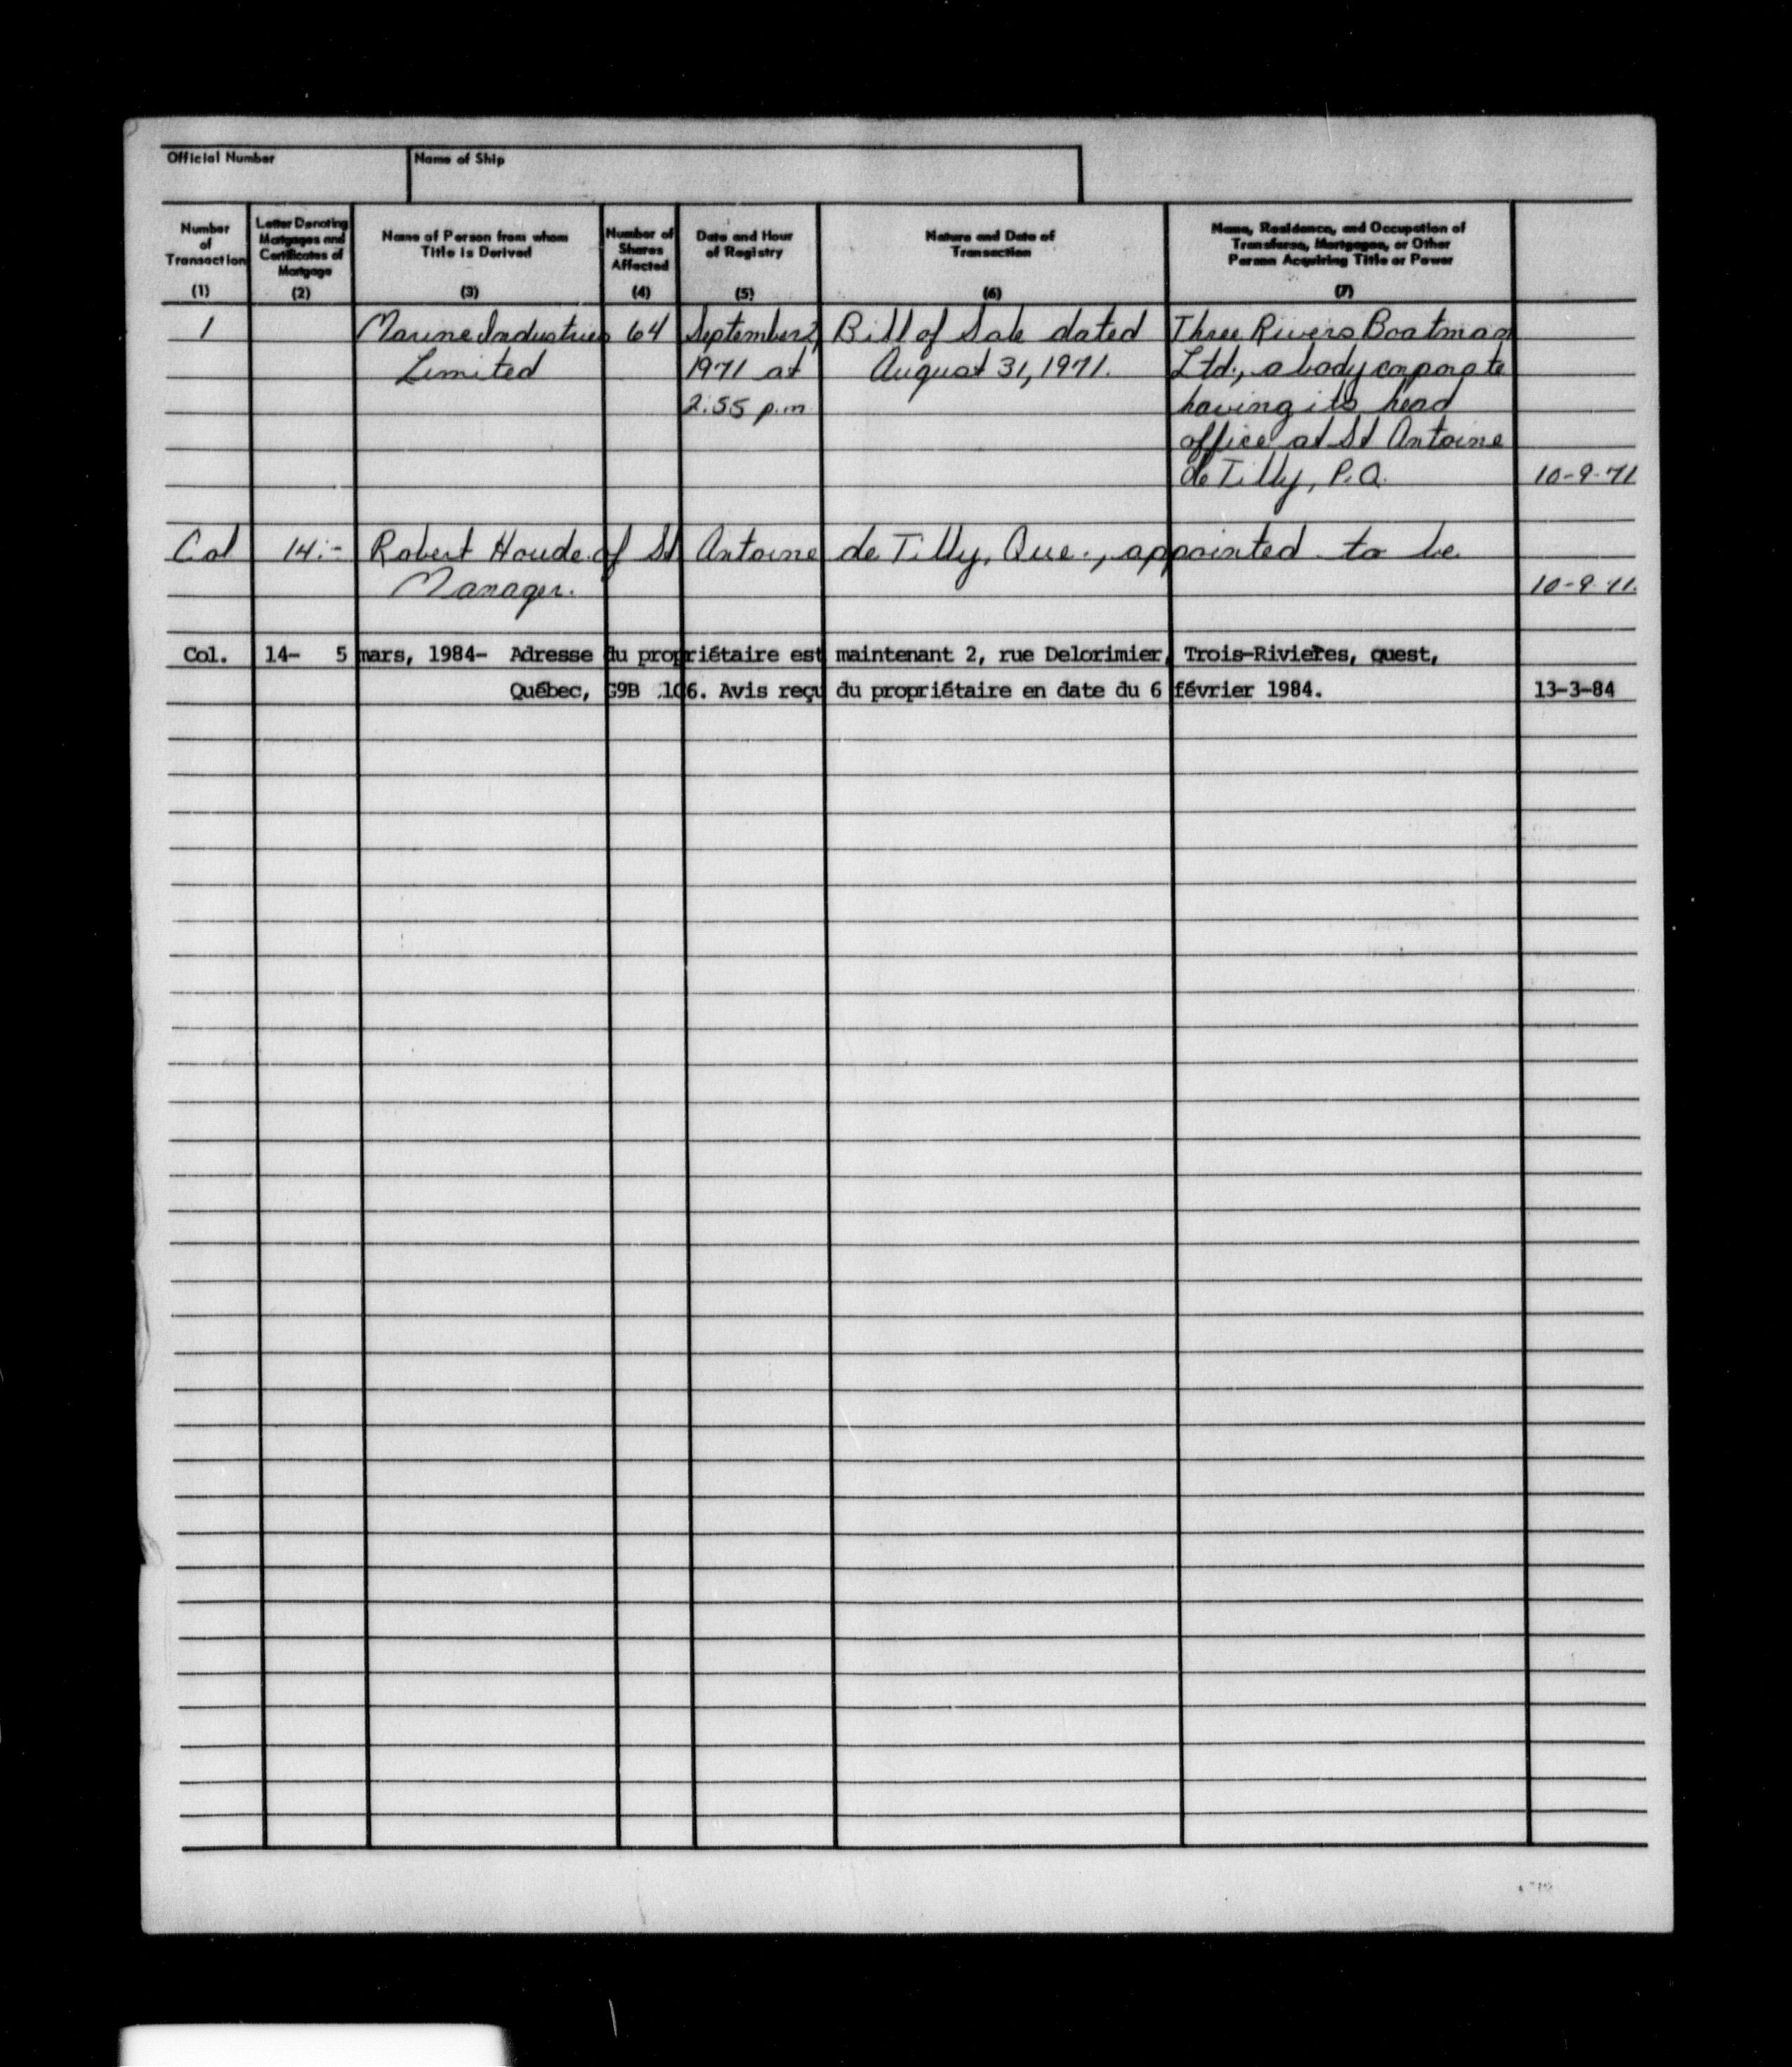 Official Number
Name of Ship
Number of Transaction (1)
Letter Denoting Mortgages and Certificates of Mortgage (2)
Name of Person from whom Title is Derived (3)
Number of Shares Affected (4)
Date and Hour of Registry (5)
Nature and Date of Transaction (6)
Name, Residence, and Occupation of Transferee, Mortgagee, or Other Person Acquiring Title or Power (7)
1 Marine Industries 64 September 2, Bill of Sale dated Three Rivers Boatman
Limited 1971 at August 31, 1971. Ltd., a body corporate
2:55 p.m. having its head
office at St Antoine
de Tilly, P.Q. 10-9-71
Col 14:- Robert Houde of St Antoine de Tilly, Que., appointed to be
Manager. 10-9-71.
Col. 14- 5 mars, 1984- Adresse du propriétaire est maintenant 2, rue Delorimier, Trois-Rivieres, ouest,
Québec, G9B 1C6. Avis reçu du propriétaire en date du 6 février 1984. 13-3-84